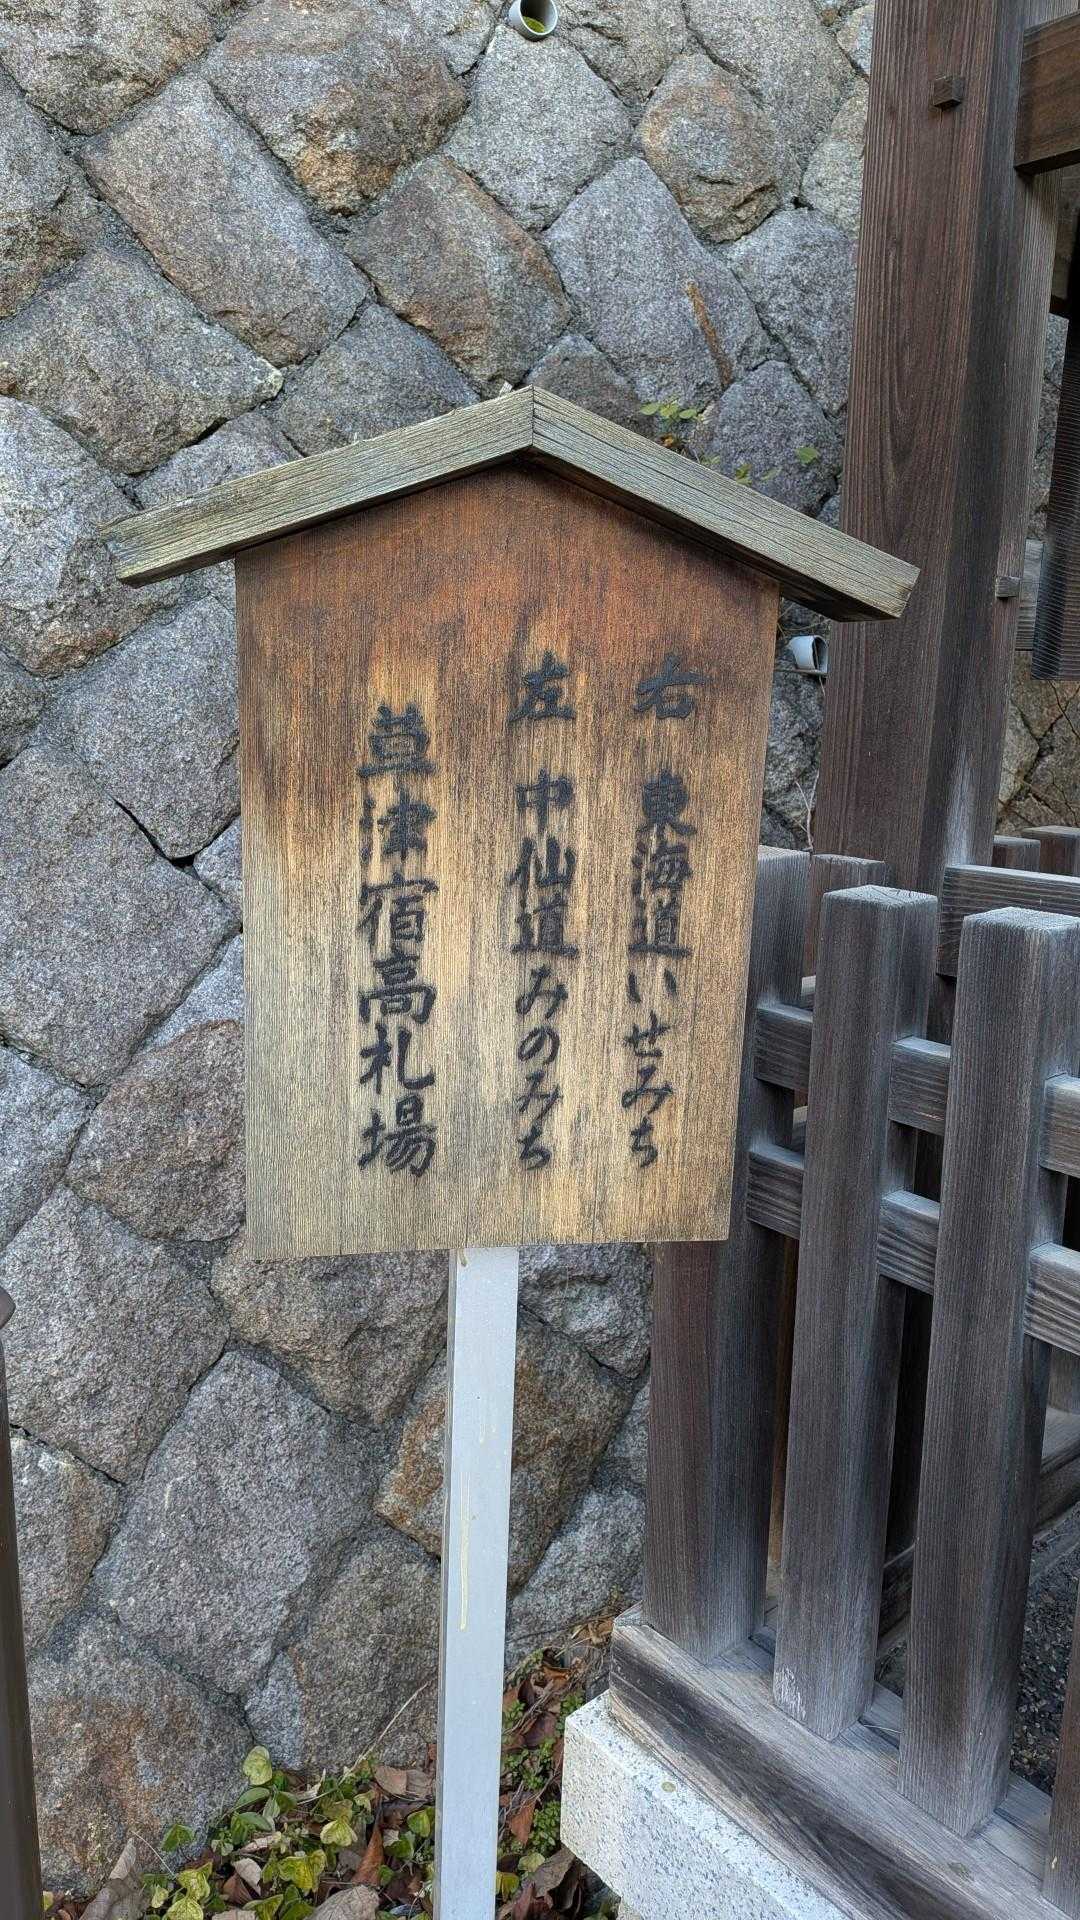 右 東海道いせみち
左 中仙道みのみち
草津宿高札場